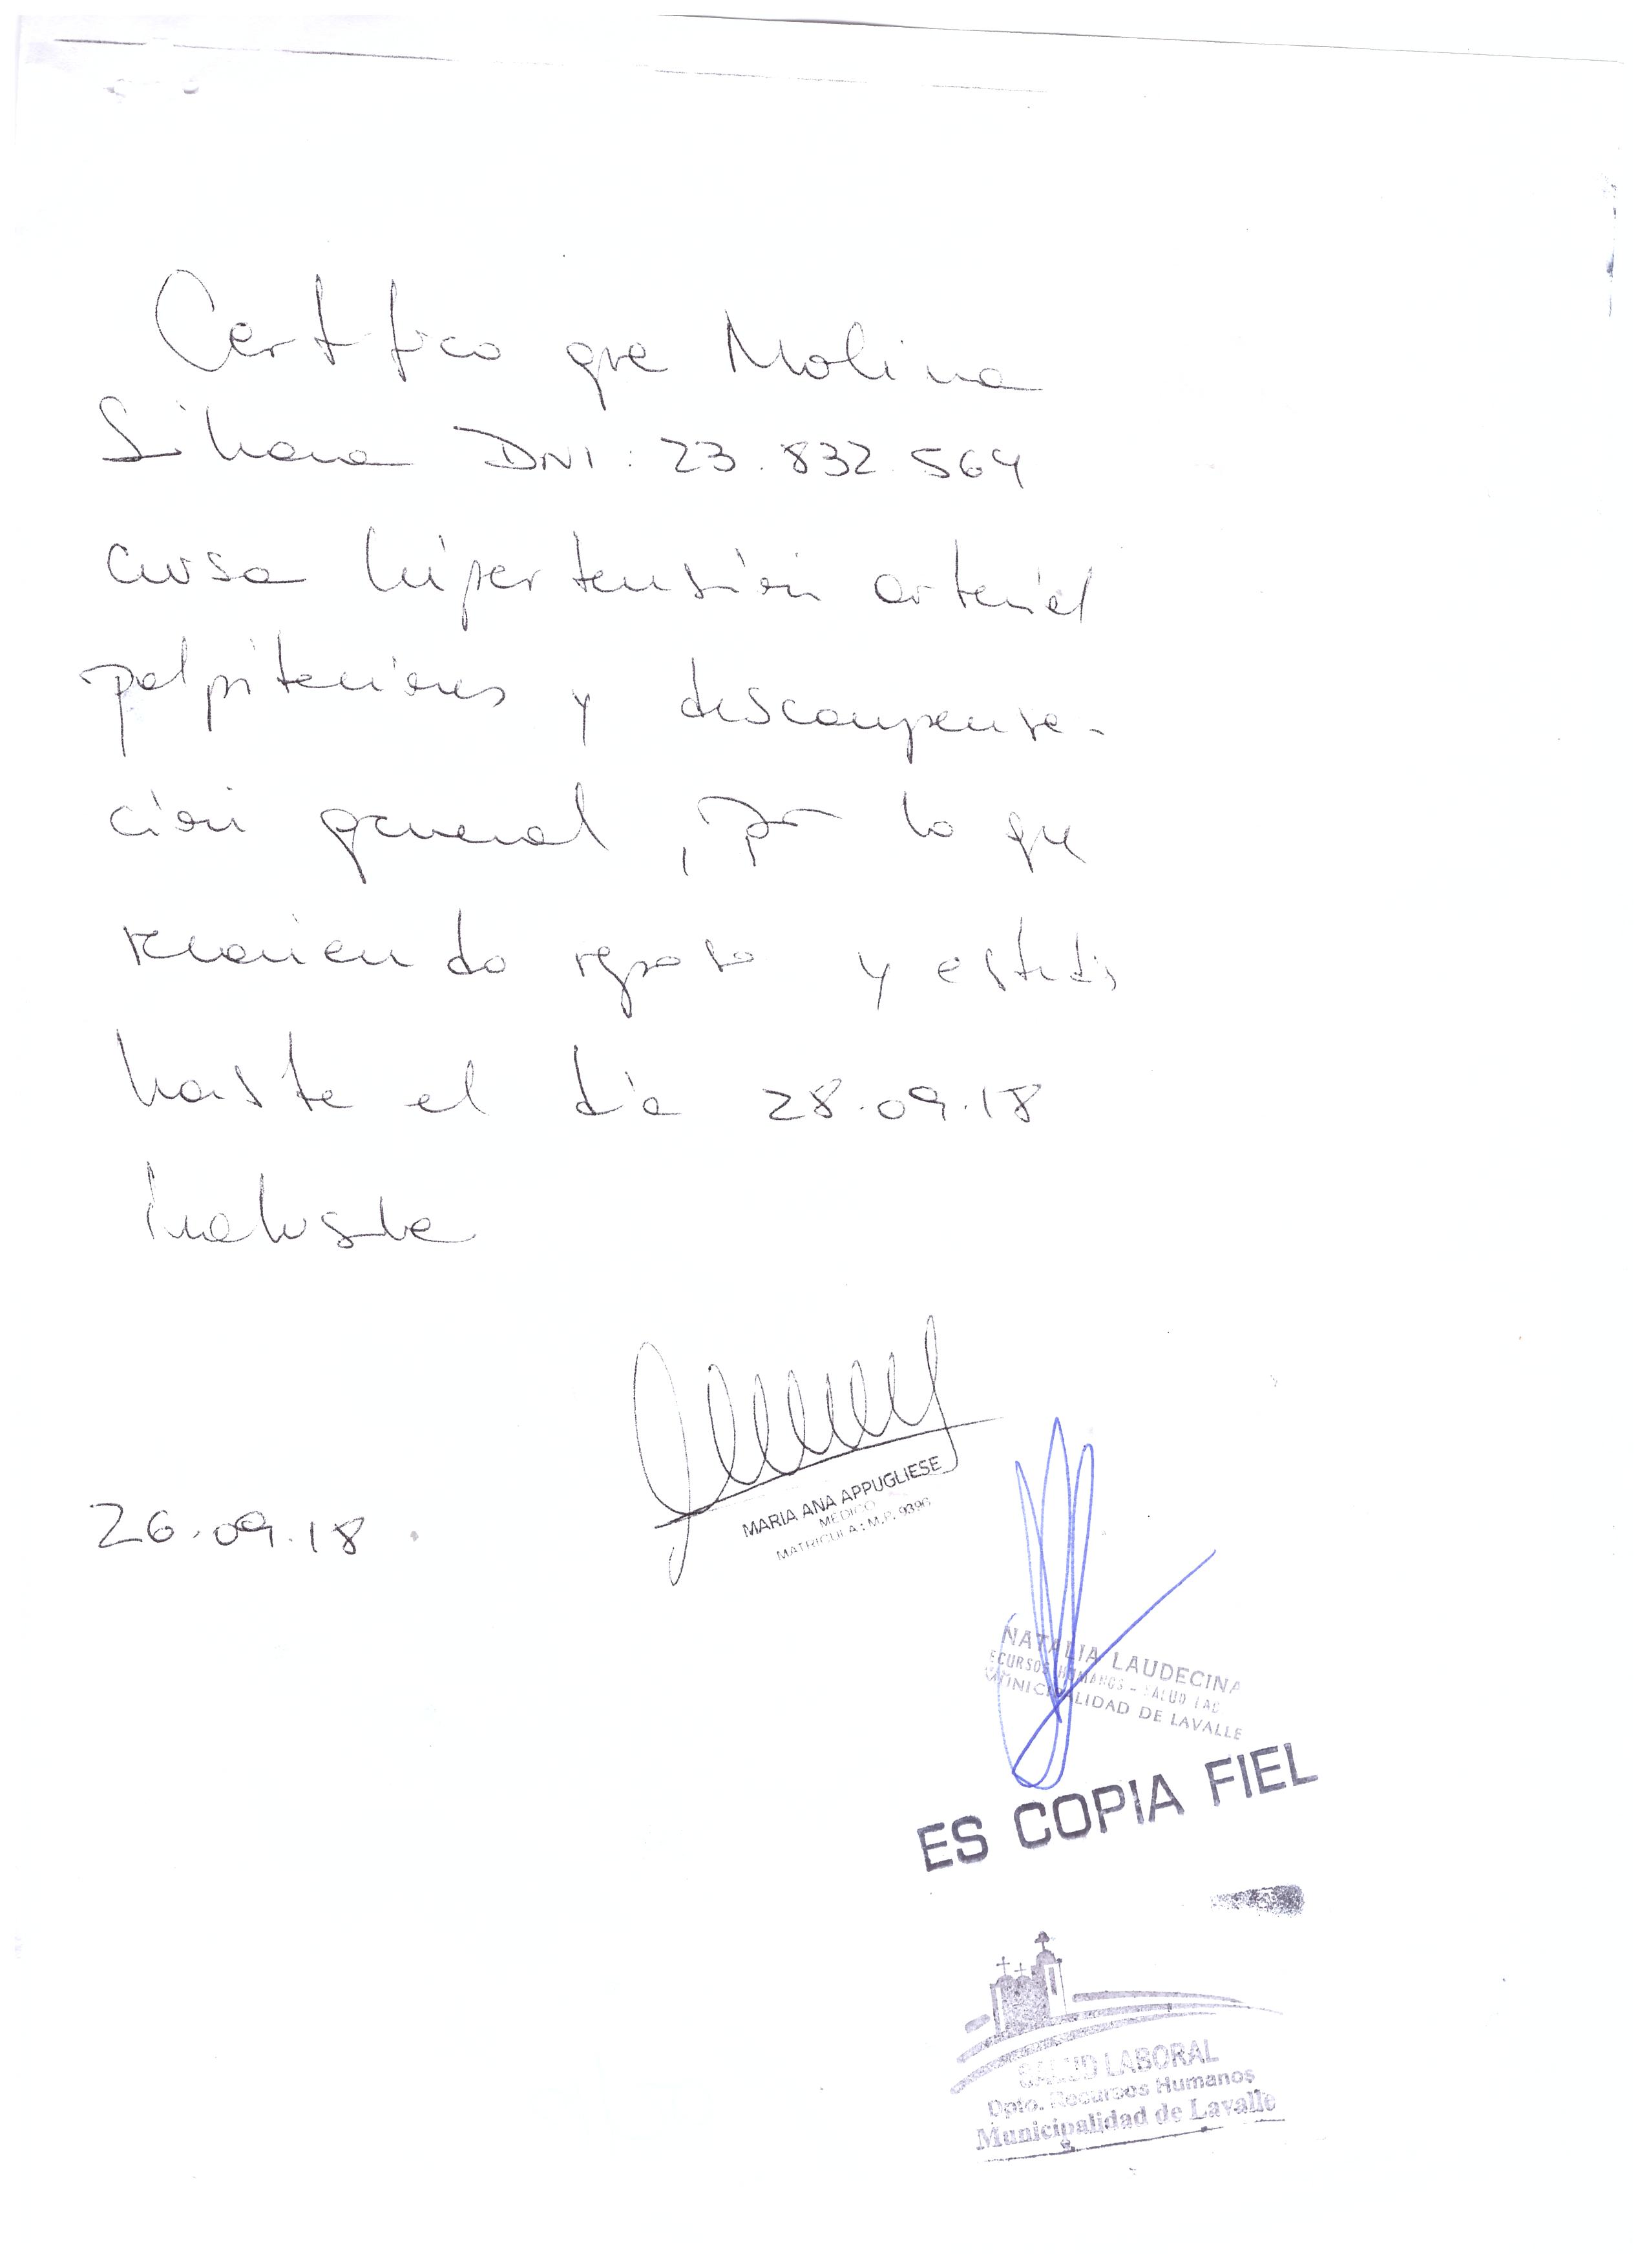 Certifico que Molina
Liliana DNI: 23.832.564
cursa hipertensión arterial
palpitaciones y descompensa-
ción general, por lo que
recomiendo reposo y
hasta el día 28.09.18
inclusive
MARIA ANA APPUGLIESE
MEDICO
MATRICULA: M.P. 9396
26.09.18.
NATALIA LAUDECINA
ECURSOS HUMANOS - SALUD LAB
MUNICIPALIDAD DE LAVALLE
ES COPIA FIEL
SALUD LABORAL
Dpto. Recursos Humanos
Municipalidad de Lavalle